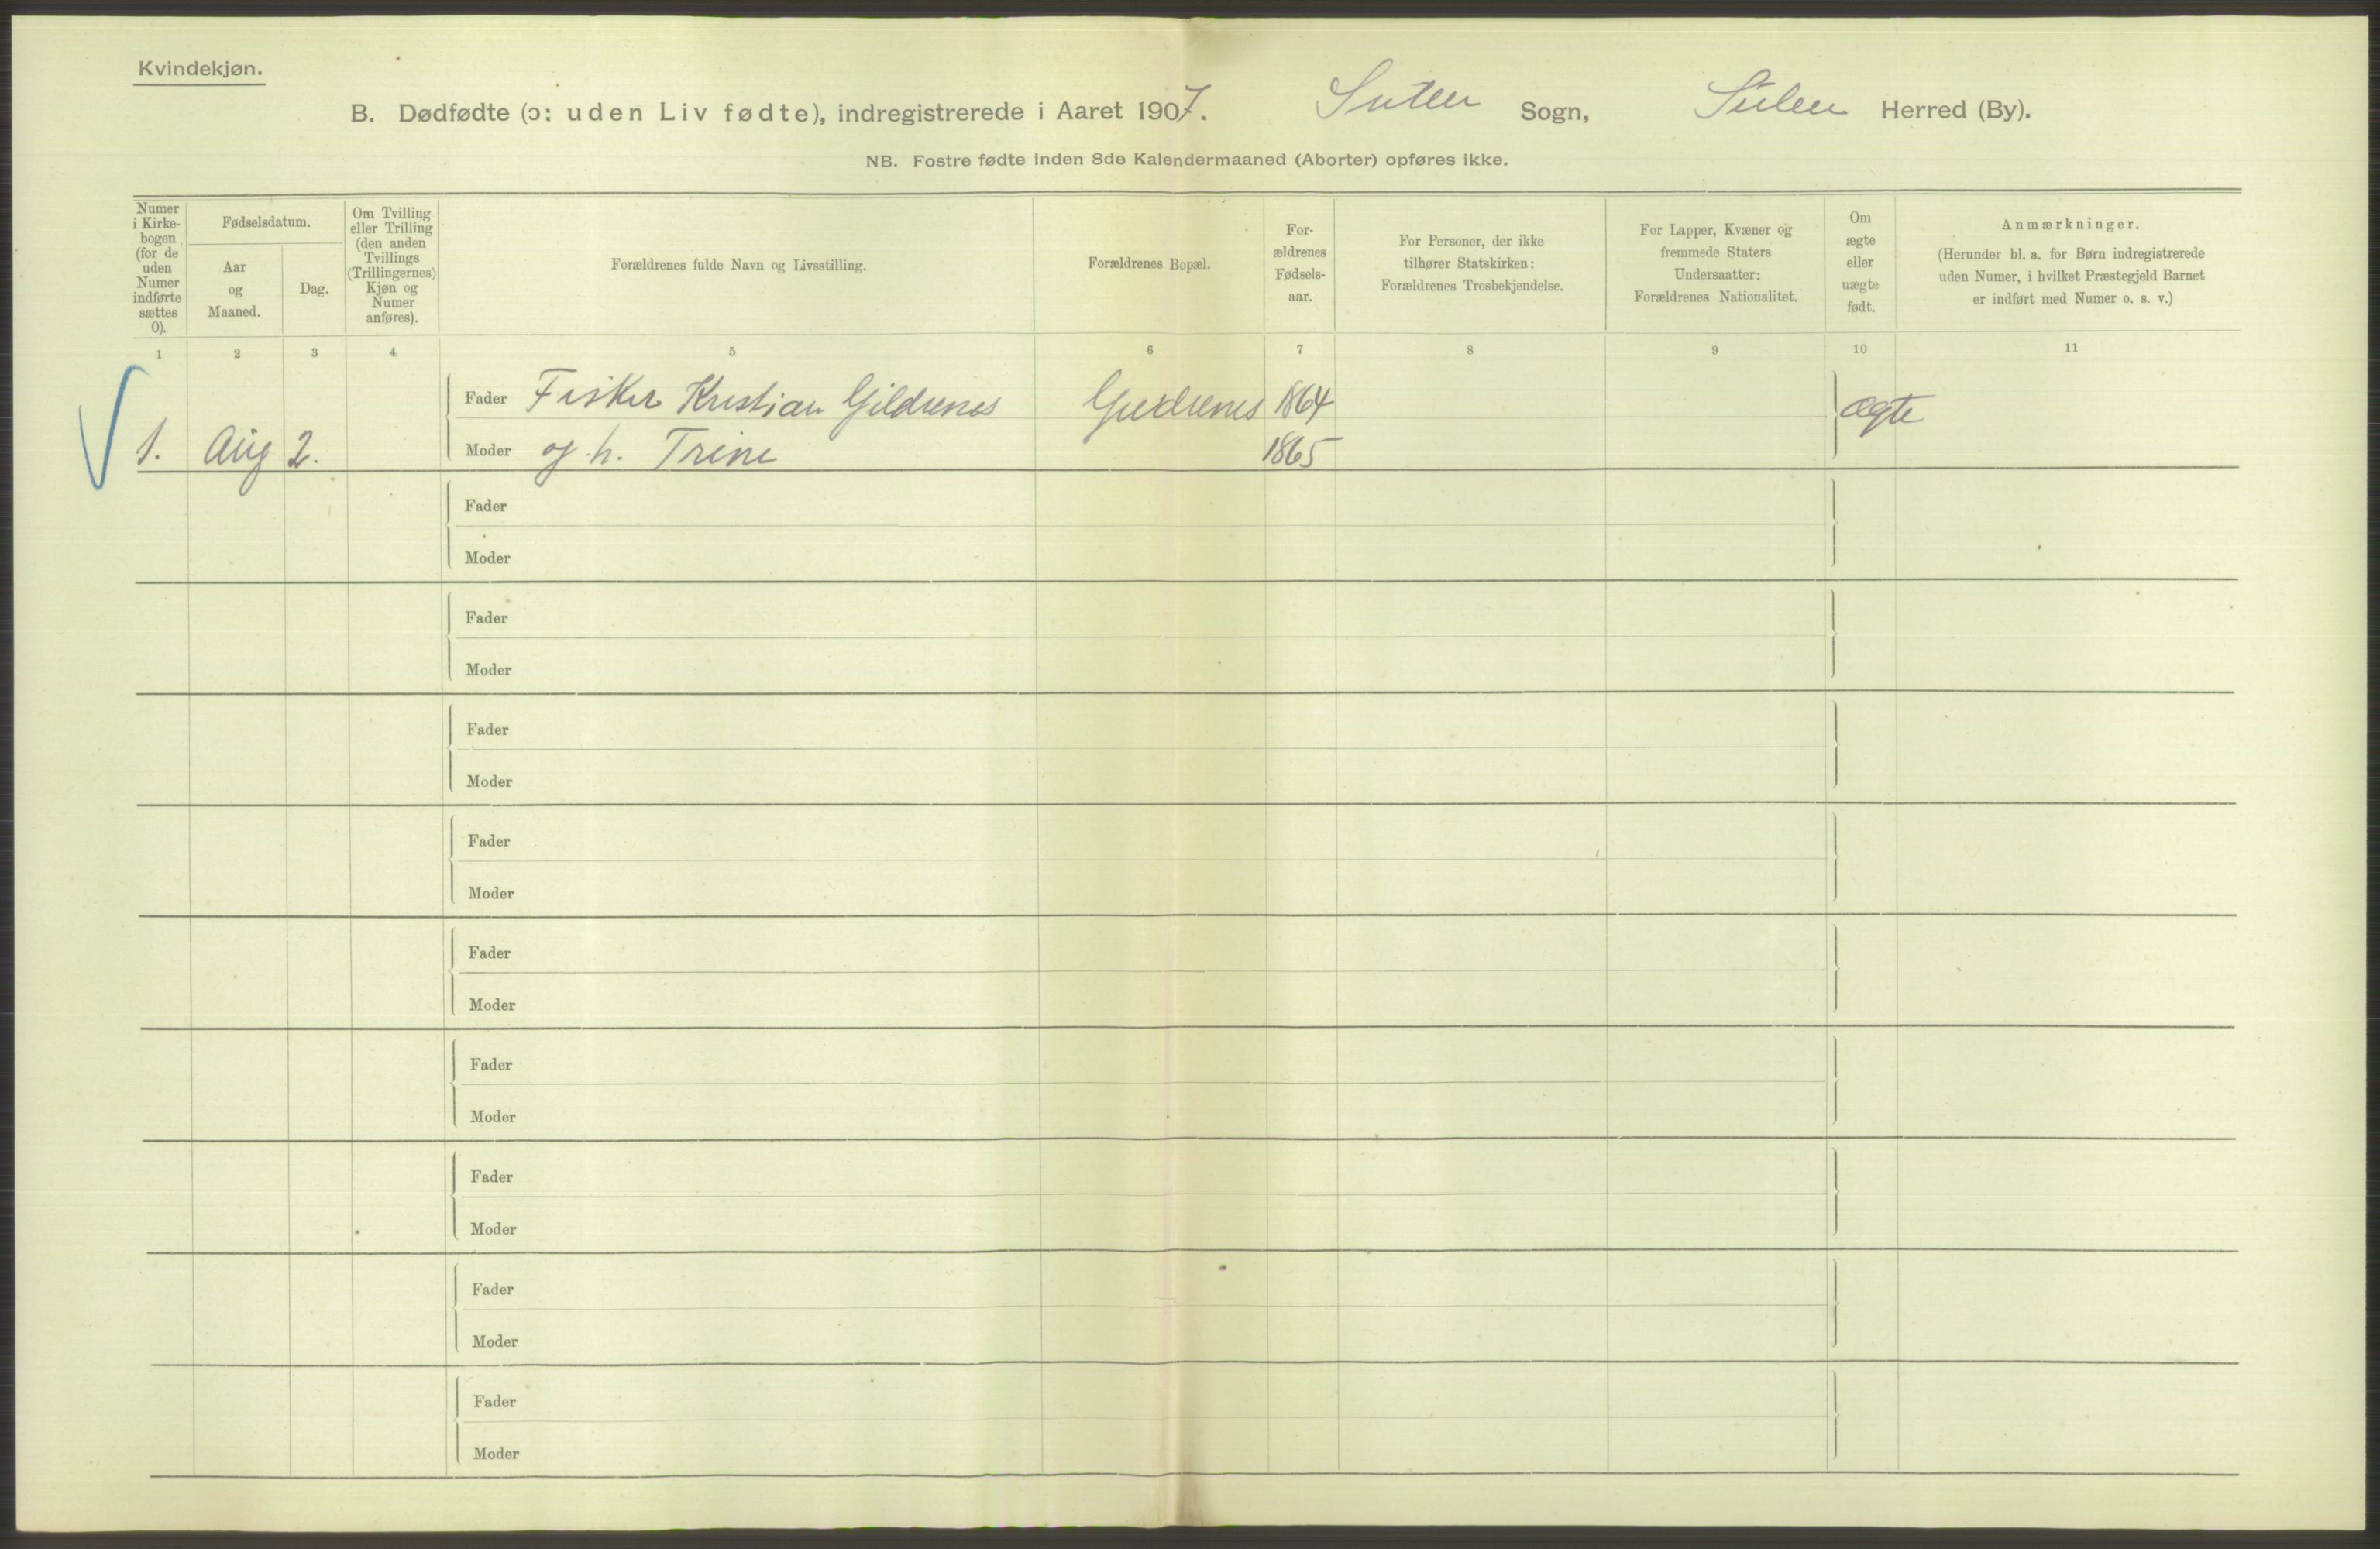 Kvindekjøn.
B. Dødfødte (ɔ: uden Liv fødte), indregistrerede i Aaret 1907. Sulen Sogn, Sulen Herred (By).
NB. Fostre fødte inden 8de Kalendermaaned (Aborter) opføres ikke.
Numer i Kirke-bogen (for de uden Numer indførte sættes 0).
Fødselsdatum.
Aar og Maaned.
Dag.
Om Tvilling eller Trilling (den anden Tvillings (Trillingernes) Kjøn og Numer anføres).
Forældrenes fulde Navn og Livsstilling.
Forældrenes Bopæl.
For-ældrenes Fødsels-aar.
For Personer, der ikke tilhører Statskirken: Forældrenes Trosbekjendelse.
For Lapper, Kvæner og fremmede Staters Undersaatter: Forældrenes Nationalitet.
Om ægte eller uægte født.
Anmærkninger.
(Herunder bl. a. for Børn indregistrerede uden Numer, i hvilket Præstegjeld Barnet er indført med Numer o. s. v.)
1 2 3 4 5 6 7 8 9 10 11
Fader Fisker Kristian Gildrenes 1864 ægte
1. Aug 2. Moder og h. Trine 1865
Fader
Moder
Fader
Moder
Fader
Moder
Fader
Moder
Fader
Moder
Fader
Moder
Fader
Moder
Fader
Moder
Fader
Moder